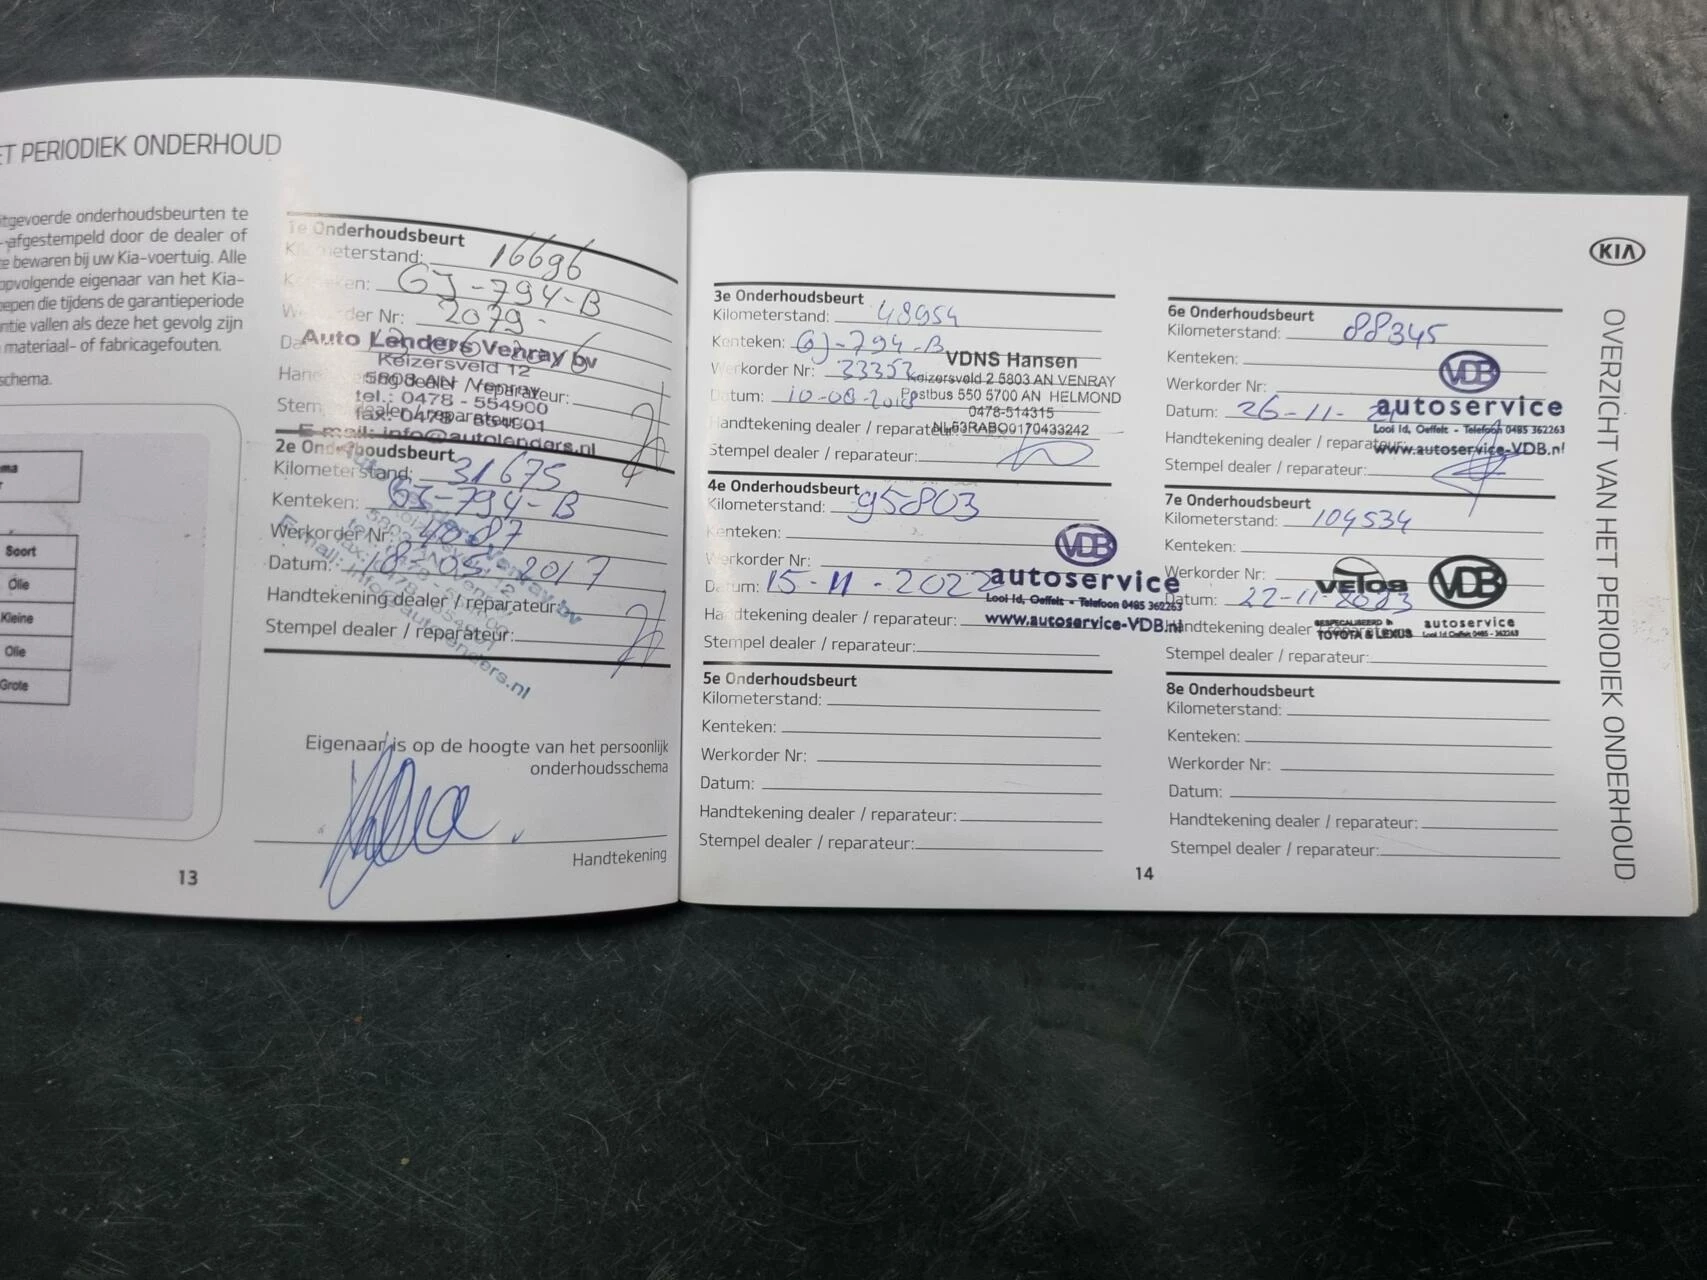 ET PERIODIEK ONDERHOUD
itgevoerde onderhoudsbeurten te
afgestempeld door de dealer of
e bewaren bij uw Kia-voertuig. Alle
opvolgende eigenaar van het Kia-
epen die tijdens de garantieperiode
ntie vallen als deze het gevolg zijn
materiaal- of fabricagefouten.
schema.
ma
r
Soort
Olie
Kleine
Olie
Grote
1e Onderhoudsbeurt
Kilometerstand: 16696
Kenteken: GJ-794-B
Werkorder Nr: 2079
Auto Lenders Venray bv
Keizersveld 12
5803 AN Venray
tel.: 0478 - 554900
fax: 0478 - 554901
E-mail: info@autolenders.nl
2e Onderhoudsbeurt
Kilometerstand: 31675
Kenteken: GJ-794-B
Werkorder Nr: 4087
Datum: 18-05-2017
Handtekening dealer / reparateur:
Stempel dealer / reparateur:
Eigenaar is op de hoogte van het persoonlijk
onderhoudsschema
Handtekening
13
3e Onderhoudsbeurt
Kilometerstand: 48954
Kenteken: GJ-794-B
Werkorder Nr: 33352
Datum: 10-08-2018
Handtekening dealer / reparateur:
Stempel dealer / reparateur:
VDNS Hansen
Keizersveld 2 5803 AN VENRAY
Postbus 550 5700 AN HELMOND
0478-514315
NL53RABO0170433242
4e Onderhoudsbeurt
Kilometerstand: 95803
Kenteken:
Werkorder Nr:
Datum: 15-11-2022
Handtekening dealer / reparateur:
Stempel dealer / reparateur:
VDB
autoservice
Looi 1d, Oeffelt - Telefoon 0485 362263
www.autoservice-VDB.nl
5e Onderhoudsbeurt
Kilometerstand:
Kenteken:
Werkorder Nr:
Datum:
Handtekening dealer / reparateur:
Stempel dealer / reparateur:
14
KIA
6e Onderhoudsbeurt
Kilometerstand: 88345
Kenteken:
Werkorder Nr:
Datum: 26-11-21
Handtekening dealer / reparateur:
Stempel dealer / reparateur:
VDB
autoservice
Looi 1d, Oeffelt - Telefoon 0485 362263
www.autoservice-VDB.nl
7e Onderhoudsbeurt
Kilometerstand: 104534
Kenteken:
Werkorder Nr:
Datum: 22-11-2023
Handtekening dealer / reparateur:
Stempel dealer / reparateur:
VETOS
GESPECIALISEERD in
TOYOTA & LEXUS
VDB
autoservice
Looi 1d Oeffelt 0485 - 362263
8e Onderhoudsbeurt
Kilometerstand:
Kenteken:
Werkorder Nr:
Datum:
Handtekening dealer / reparateur:
Stempel dealer / reparateur:
OVERZICHT VAN HET PERIODIEK ONDERHOUD